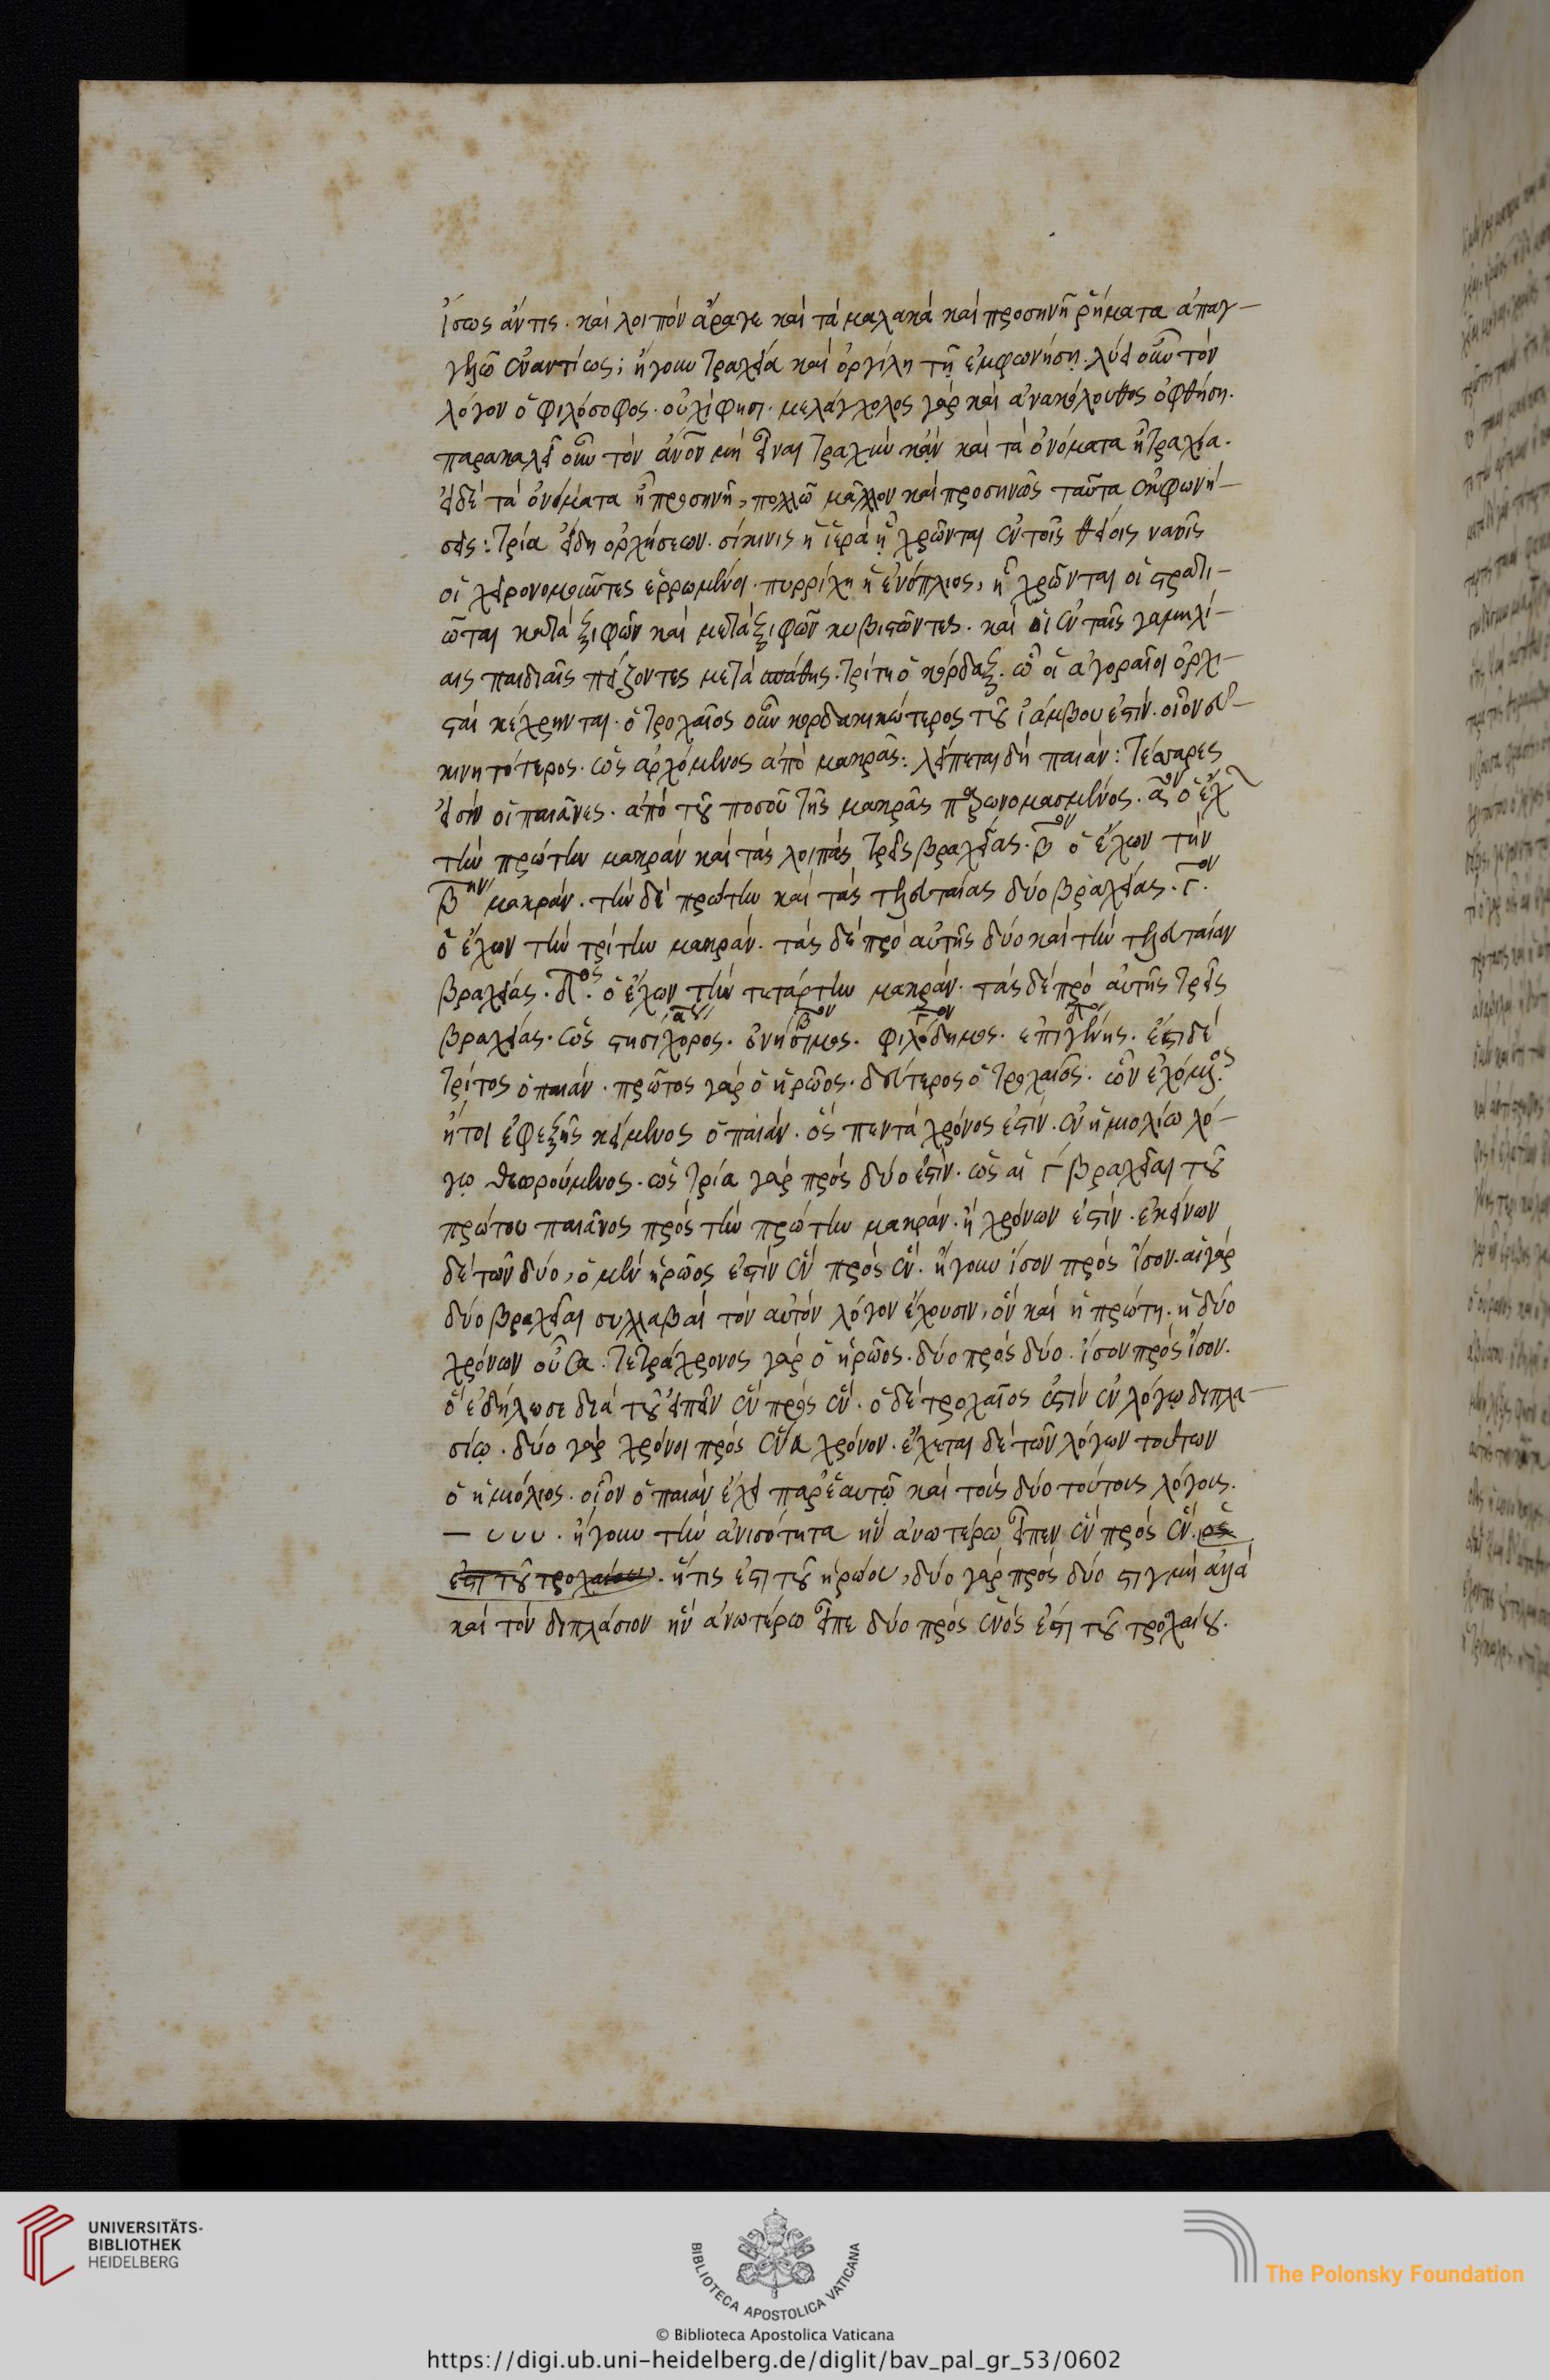 ἴσως ἄν τις. καὶ λοιπὸν ἄραγε καὶ τὰ μαλακὰ καὶ προσηνῆ ῥήματα ἀπαγ-
γελῶ ἐναντίως; ἤγουν τραχεῖα καὶ ὀργίλη τῇ ἐμφωνήσῃ. λύει οὖν τὸν
λόγον ὁ φιλόσοφος. οὐχί φησι. μελάγχολος γὰρ καὶ ἀνακόλουθος ὀφθήσῃ.
παρακαλεῖ οὖν τὸν ἀνον μὴ εἶναι τραχὺν κἀν καὶ τὰ ὀνόματα ἦ τραχέα.
εἰ δὲ τὰ ὀνόματα ἦ προσηνῆ, πολλῶ μᾶλλον καὶ προσηνῶς ταῦτα ἐκφωνή-
σεις: τρία εἴδη ὀρχήσεων. σίκινις ἡ ἱερὰ ᾗ χρῶνται ἐν τοῖς θείοις ναοῖς
οἱ χειρονομοῦντες ἐρρωμένοι. πυρρίχη ἡ ἐνόπλιος, ᾗ χρῶνται οἱ στρατι-
ῶται κατὰ ξιφῶν καὶ μετὰ ξιφῶν κυβιστῶντες. καὶ οἱ ἐν ταῖς γαμηλί-
αις παιδιαῖς παίζοντες μετὰ σπάθης. τρίτη ὁ κόρδαξ. ᾧ οἱ ἀγοραῖοι ὀρχη-
σταὶ κέχρηνται. ὁ τροχαῖος οὖν κορδακικώτερος τοῦ ἰάμβου ἐστίν. οἷον εὐ-
κινητότερος. ὡς ἀρχόμενος ἀπὸ μακρᾶς: λείπεται δὴ παιάν: τέσσαρες
εἰσὶν οἱ παιᾶνες. ἀπὸ τοῦ ποσοῦ τῆς μακρᾶς παρωνομασμένος. αον ὁ ἔχ
τὴν πρώτην μακρὰν καὶ τὰς λοιπὰς τρεῖς βραχείας. βον ὁ ἔχων τὴν
βην μακράν. τὴν δὲ πρώτην καὶ τὰς τελευταίας δύο βραχείας. γον.
ὁ ἔχων τὴν τρίτην μακράν. τὰς δὲ πρὸ αὐτῆς δύο καὶ τὴν τελευταίαν
βραχείας. δος. ὁ ἔχων τὴν τετάρτην μακράν. τὰς δὲ πρὸ αὐτῆς τρεῖς
βραχείας. ὡς στησίχορος. ὀνήσιμος. φιλόδημος. ἐπιγένης. ἔστι δὲ
τρίτος ὁ παιάν. πρῶτος γὰρ ὁ ἡρῶος. δεύτερος ὁ τροχαῖος. ὧν ἐχόμενος
ἤτοι ἐφεξῆς κείμενος ὁ παιάν. ὃς πεντάχρονος ἐστίν. ἐν ἡμιολίω λό-
γῳ θεωρούμενος. ὡς τρία γὰρ πρὸς δύο ἐστίν. ὡς αἱ γ βραχεῖαι τοῦ
πρώτου παιᾶνος πρὸς τὴν πρώτην μακράν. ἡ χρόνων ἐστίν. ἐκείνων
δὲ τῶν δύο, ὁ μὲν ἡρῶος ἐστὶν ἓν πρὸς ἕν. ἤγουν ἴσον πρὸς ἴσον. αἱ γὰρ
δύο βραχεῖαι συλλαβαὶ τὸν αὐτὸν λόγον ἔχουσιν, ὃν καὶ ἡ πρώτη. ἡ δύο
χρόνων οὖσα. τετράχρονος γὰρ ὁ ἡρῶος. δύο πρὸς δύο. ἴσον πρὸς ἴσον.
ὃ ἐδήλωσε διὰ τοῦ εἰπεῖν ἓν πρὸς ἕν. ὁ δὲ τροχαῖος ἐστὶν ἐν λόγῳ διπλα-
σίῳ. δύο γὰρ χρόνοι πρὸς ἕνα χρόνον. ἔχεται δὲ τῶν λόγων τούτων
ὁ ἡμιόλιος. οἷον ὁ παιὰν ἔχει παρ' ἑαυτῷ καὶ τοὺς δύο τούτους λόγους.
— υυυ. ἤγουν τὴν ἀνισότητα ἣν ἀνωτέρω εἶπεν ἓν πρὸς ἕν. ὅς
ἐστι τοῦ τροχαίου. ἥτις ἐστι τοῦ ἡρώου, δύο γὰρ πρὸς δύο στιγμὴ ἀλλὰ
καὶ τὸν διπλάσιον ἣν ἀνωτέρω εἶπε δύο πρὸς ἑνός ἐστι τοῦ τροχαίου.
UNIVERSITÄTS-
BIBLIOTHEK
HEIDELBERG
BIBLIOTECA APOSTOLICA VATICANA
The Polonsky Foundation
© Biblioteca Apostolica Vaticana
https://digi.ub.uni-heidelberg.de/diglit/bav_pal_gr_53/0602